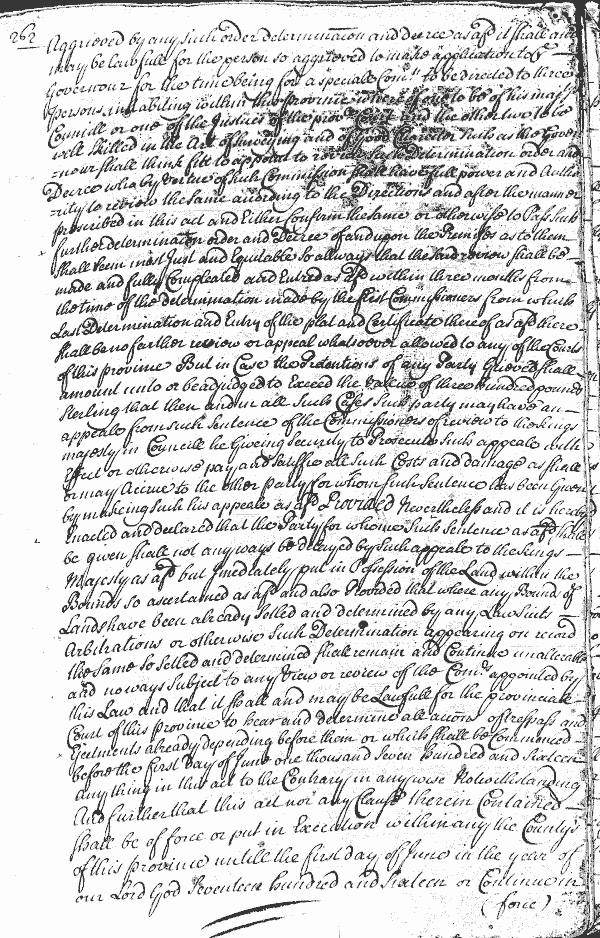 262
Aggrieved by any such order determination and decree as afd it shall and
may be lawfull for the person so aggrieved to make application to ye
Governour for the time being for a speciale Comn to be directed to three
persons inhabiting within this province where of one to be of his majtys
Councill or one of the Justices of the provll Court and the other two to be
well skilled in the Art of surveying and of good Character such as the Gover
=nour shall think fitt to appoint to review such Determination order and
Decree who by vertue of such Commission shall have full power and Autho
=rity to review the same according to the Directions and after the manner
prescribed in this act and Either Confirm the same or otherwise to Pass such
further determination order and Decree of and upon the Premises as to them
shall seem most Just and Equitable so allways that the said review shall be
made and fully Compleated and Entred as afd within three months from
the time of the determination made by the first Commissioners from which
Last Determination and Entry of the plat and Certificate thereof as afd there
shall be no farther review or appeal whatsoever allowed to any of the Courts
of this province But in Case the Pretentions of any Party Grieved shall
amount unto or be adjudged to Exceed the value of three hundred pounds
sterling that then and in all such Cases such party may have an
appeale from such Sentence of the Commissioners of review to the kings
majesty in Councill he Giveing security to Prosecute such appeale with
Effect or otherwise pay and satisfie all such Costs and damage as shall
or may Accrue to the other party for whom such sentence has been Given
by makeing such his appeale as afd Provided Nevertheless and it is hereby
enacted and declared that the Party for whome such Sentence as afd shall
be given shall not anyways be delayed by such appeale to the kings
Majesty as afd but Imediately put in Possession of the Land within the
Bounds so ascertained as afd and also Provided that where any Bounds of
Lands have been already settled and determined by any Law suits
Arbitrations or otherwise such Determination appearing on record
the same so settled and determined shall remain and Continue unalterable
and noways subject to any view or review of the Comrs appointed by
this Law and that it shall and may be Lawfull for the provinciall
Court of this Province to hear and determine all accons of trespass and
Ejectments already depending before them or which shall be Commenced
before the first day of June one thousand Seven Hundred and Sixteen
Any thing in this act to the Contrary in any wise Notwithstanding
And further that this act nor any Clause therein Contained
shall be of force or put in Execution within any the Countys
of this province untill the first day of June in the year of
our Lord God Seventeen hundred and Sixteen or Continue in
(force)